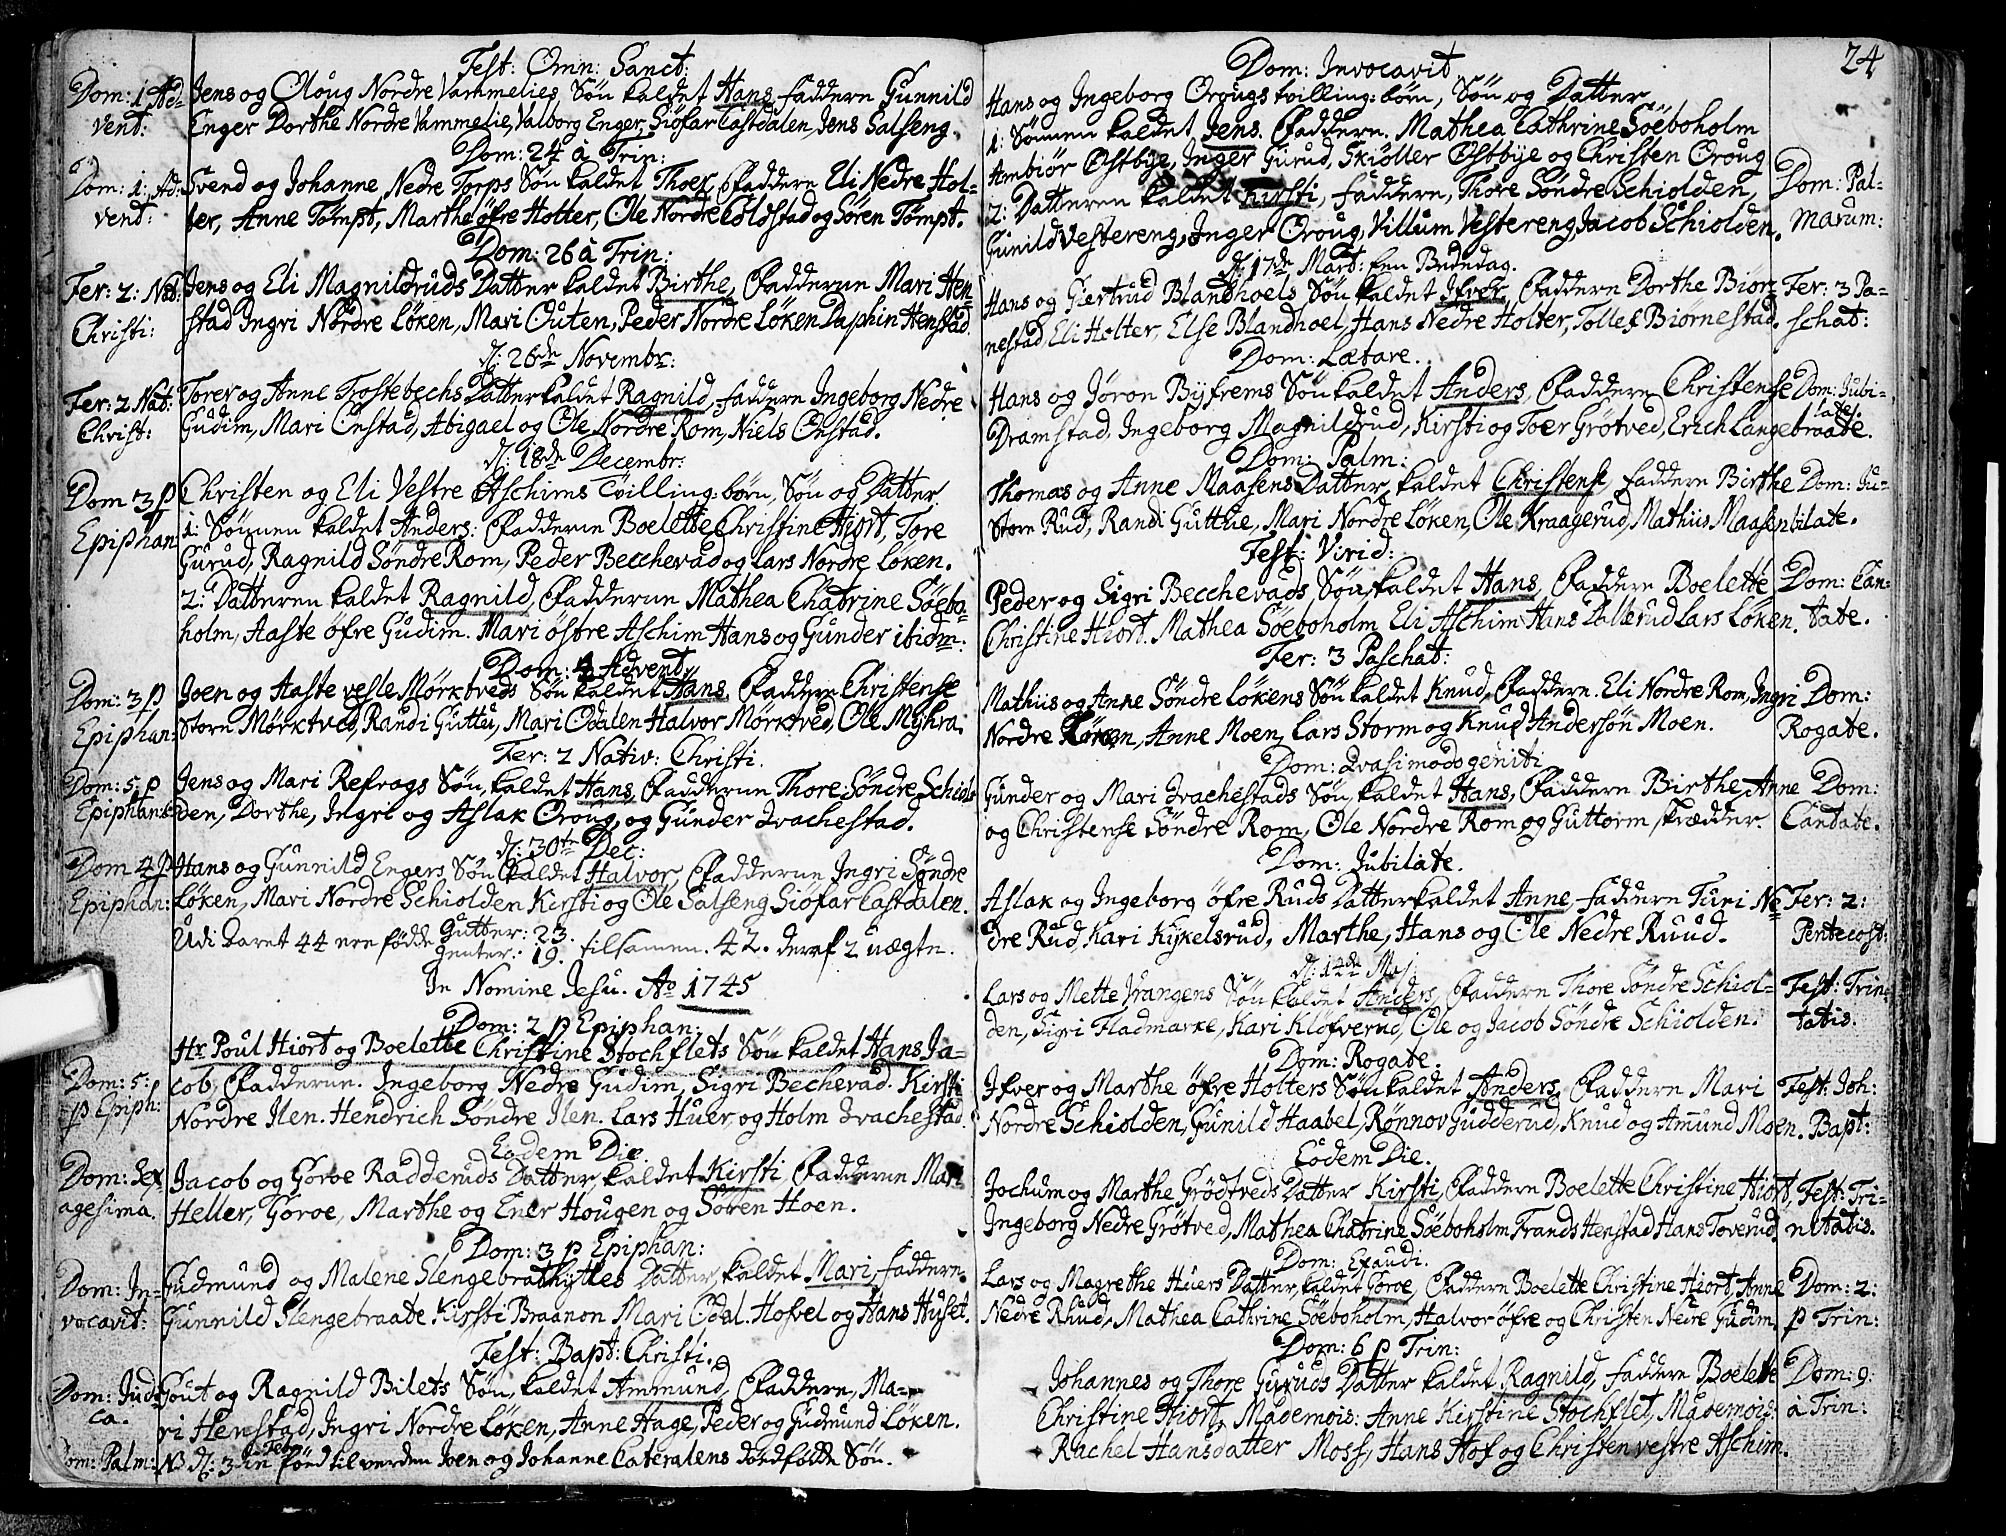 Fest: Omn: Sanct:
Dom: 1 Ad- Jens og Oloug Nordre Vammelies Søn kaldet Hans faddern Gunnild
vent: Enger Dorthe Nordre Vammelie, Valborg Enger, Siøfar Castdalen, Jens Salseng.
Dom: 24 à Trin:
Dom: 1: Ad- Svend og Johanne Nedre Torps Søn kaldet Thoer, Faddern Eli Nedre Hol-
vent: ter, Anne Tømpt, Marthe øfre Holter, Ole Nordre Coldstad og Søren Tømpt.
Dom: 26 à Trin:
Fer: 2: Nat: Jens og Eli Magnildruds Datter kaldet Birthe, Fadderne Mari Hen-
Christi: stad Ingri Nordre Løken, Mari Outen, Peder Nordre Løken Daphin Henstad
d: 26de Novembr:
Fer: 2 Nat: Torer og Anne Tostebechs Datter kaldet Ragnild, faddern Ingeborg Nedre
Christ: Gudim, Mari Onstad, Abigael og Ole Nordre Rom, Niels Onstad.
d: 18de Decembr:
Dom 3 p Christen og Eli Vestre Aschims Tvilling: børn, Søn og Datter
Epiphan: 1: Sønnen kaldet Anders: Fadderne Boelette Christine Hiort, Tore
Gurud, Ragnild Søndre Rom, Peder Becchevad og Lars Nordre Løken.
2: Datteren kaldet Ragnild, Fadderne Mathea Chatrine Söebo-
holm, Aaste øfre Gudim. Mari østre Aschim Hans og Gunder ibidm:
Dom: 4 Advent
Dom: 3 p Joen og Aaste vesle Mørktveds Søn kaldet Hans, Faddern Christense
Epiphan: Storn Mørktved, Randi Guttu, Mari Odalen Halvor Mørktved, Ole Myhra.
Fer: 2 Nativ: Christi.
Dom: 5 p Jens og Mari Refrogs Søn kaldet Hans Fadderne Thore Søndre Schiol-
Epiphan: den, Dorthe, Ingri og Aslak Oroug, og Gunder Dvachestad.
d: 30te Dec:
Dom 4 p Hans og Gunnild Engers Søn kaldet Halvor, Fadderne Ingri Søndre
Epiphan: Løken, Mari Nordre Schiolden Kirsti og Ole Salseng Siøfar Castdalen.
Udi Aaret 44 ere fødde Gutter: 23.
Genter: 19. tilsamen. 42. deraf 2 uægte.
In Nomine Jesu. Ao 1745
Dom: 2 p Epiphan:
Hr. Poul Hiort og Boelette Christine Stochflets Søn kaldet Hans Ja-
Dom: 5: cob, Fadderne. Ingeborg Nedre Gudim, Sigri Bechevad. Kirsti
p Epiph: Nordre Ilen. Hendrich Søndre Ilen. Lars Huer, og Holm Dvachestad.
Eodem Die.
Dom: Sex- Jacob og Goroe Radderuds Datter, kaldet Kirsti, Fadderne Mari
agesima. Heller, Goroe, Marthe og Ener Hougen og Søren Hoen.
Dom: 3 p Epiphan:
Dom: In- Gudmund og Malene Slengebrathyttes Datter, kaldet Mari, faddern.
vocavit: Gunnild Slengebraate Kirsti Braanon Mari Odal. Hofvel og Hans Huset.
Fest: Bapt: Christi.
Dom: Judi- Gout og Ragnild Bilets Søn, kaldet Ammund, Faddern, Ma-
ca. ri Henstad, Ingri Nordre Løken, Anne Hage, Peder og Gudmund Løken.
Dom: Palm: NB d: 3 Febr: fød til verden Joen og Johanne Cateralens dødfødde Søn.
24
Dom: Invocavit
Hans og Ingeborg Orougs tvilling: børn, Søn og Datter
1: Sønnen kaldet Jens. Faddern. Mathea Cathrine Söeboholm
Ambiør Østbye, Inger Gurud, Skiøller Østbye og Christen Oroug
2: Datteren kaldet Kirsti, faddern, Thore Søndre Schiolden, Dom: Pal-
Gunild Vestereng, Inger Oroug, Villum Vestereng, Jacob Schiolden. marum:
d: 17de Mart: een Bededag.
Hans og Giertrud Blandhoels Søn kaldet Ifver, Faddern Dorthe Biør- Fer: 3 Pa-
nestad, Eli Holter, Else Blandhoel, Hans Nedre Holter, Tollef Biørnestad. schat:
Dom: Lætare.
Hans og Jøron Byfrems Søn kaldet Anders, Faddern Christense Dom: Jubi-
Dramstad. Ingeborg Magnildrud, Kirsti og Toer Grøtved, Erich Langebraate. late.
Dom: Palm:
Thomas og Anne Maasens Datter kaldet Christense, faddern Birthe Dom: Ju-
Storn Rud, Randi Gutthe, Mari Nordre Løken, Ole Kraagerud, Mathiis Maasen bilate.
Fest: Virid:
Peder og Sigri Becchevads Søn kaldet Hans, Faddern Boelette Dom: Can-
Christine Hiort. Mathea Söeboholm Eli Aschim Hans Dallerud Lars Løken. tate.
Fer: 3 Paschat:
Mathiis og Anne Søndre Løkens Søn kaldet Knud, Faddern. Eli Nordre Rom, Ingri Dom:
Nordre Løken, Anne Moen, Lars Storm og Knud Andersøn Moen. Rogate.
Dom: Qvasimodogeniti
Gunder og Mari Dvachestads Søn kaldet Hans, Faddern Birthe, Anne Dom:
og Christense Søndre Rom, Ole Nordre Rom og Guttorm skrædder. Cantate.
Dom: Jubilate.
Aslak og Ingeborg øfre Ruds Datter kaldet Anne, faddern Turi Ne- Fer: 2:
dre Rud, Kari Kykelsrud, Marthe, Hans og Ole Nedre Ruud. Pentecost:
d: 14de Maj
Lars og Mette Vrangens Søn kaldet Anders, Faddern Thore Søndre Schiol- Fest: Trini-
den, Sigri Fladmarke, Kari Kløfverud, Ole og Jacob Søndre Schiolden. tatis.
Dom: Rogate.
Ifver og Marthe øfre Holters Søn kaldet Anders, Faddern Mari Fest: Joh:
Nordre Schiolden, Gunild Haabel, Rønnov Gudderud, Knud og Amund Moen. Bapt:
Eodem Die.
Jochum og Marthe Grødtveds Datter Kirsti, Faddern Boelette Christine Hiort, Fest: Tri-
Ingeborg Nedre Grøtved, Mathea Chatrine Söeboholm Frands Henstad Hans Toverud. nitatis.
Dom: Exaudi.
Lars og Magrethe Huers Datter, kaldet Goroe, Faddern Boelette Christine Hiort, Anne Dom: 2:
Nedre Rhud, Mathea Cathrine Söeboholm, Halvor øfre og Christen Nedre Gudim. p Trin:
Dom: 6 p Trin:
Johannes og Thore Guruds Datter kaldet Ragnild, faddern Boelette Dom: 9:
Christine Hiort, Mademois: Anne Kirstine Stochflet, Mademois: à Trin:
Rachel Hansdatter Moss, Hans Hof og Christen vestre Aschim.